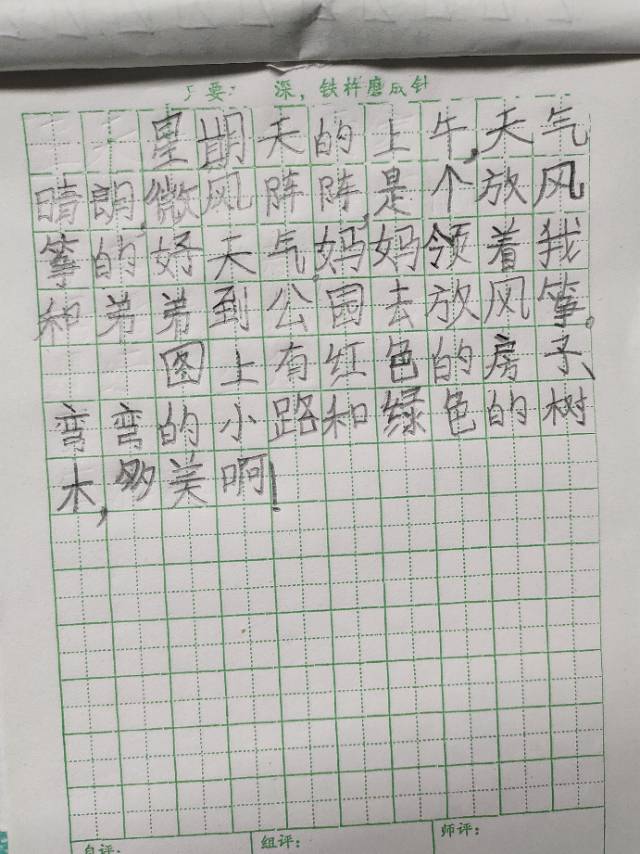 要: 深,铁杵磨成针
星期天的上牛,天气
晴朗,微风阵阵,是个放风
筝的好天气,妈妈领着我
和弟弟到公园去放风筝。
图上有红色的房子、
弯弯的小路和绿色的树
木,多美啊!
自评: 组评: 师评: